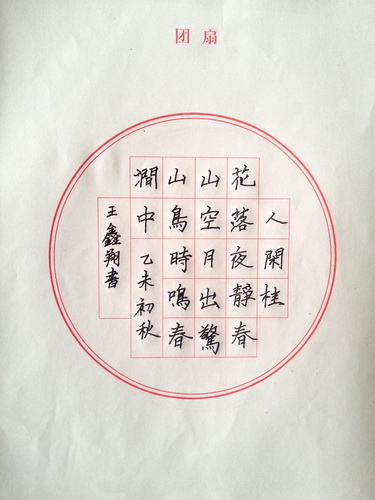 团扇
人閑桂
花落夜靜春
山空月出驚
山鳥時鳴春
澗中乙未初秋
王鑫翔書